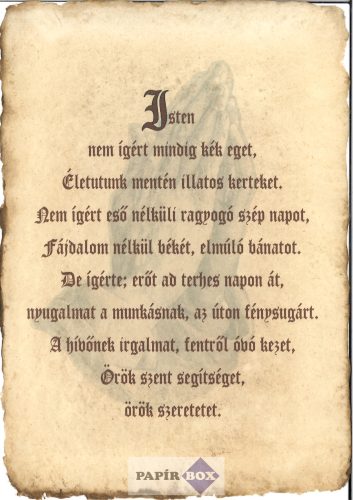 Isten
nem ígért mindig kék eget,
Életutunk mentén illatos kerteket.
Nem ígért eső nélküli ragyogó szép napot,
Fájdalom nélkül békét, elmúló bánatot.
De ígérte; erőt ad terhes napon át,
nyugalmat a munkásnak, az úton fénysugárt.
A hívőnek irgalmat, fentről óvó kezet,
Örök szent segítséget,
örök szeretetet.
PAPÍR BOX